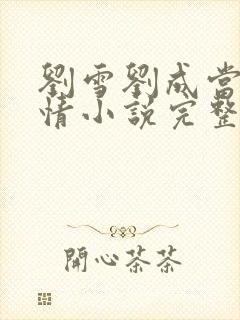 劉雪劉成當
情小說完整
開心茶茶